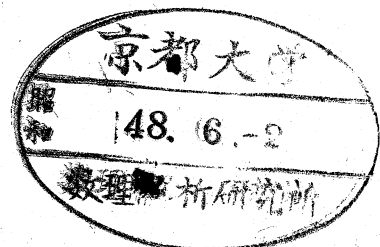 京都大学
昭和 48. 6. -2
数理解析研究所